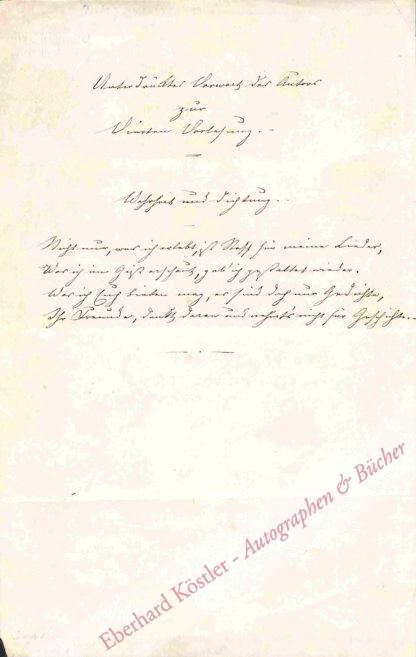 Unterdrücktes Vorwort des Autors
zur
Vierten Vorlesung. –
Wahrheit und Dichtung. –
Nicht nur, was ich erlebt, ist Stoff für meine Lieder,
Was ich im Geist erschaut, gab ich gestaltet wieder.
Was ich Euch bieten mag, es sind doch nur Gedichte,
Ihr Freunde, denkt daran und nehmt's nicht für Geschichte. –
Eberhard Köstler - Autographen & Bücher